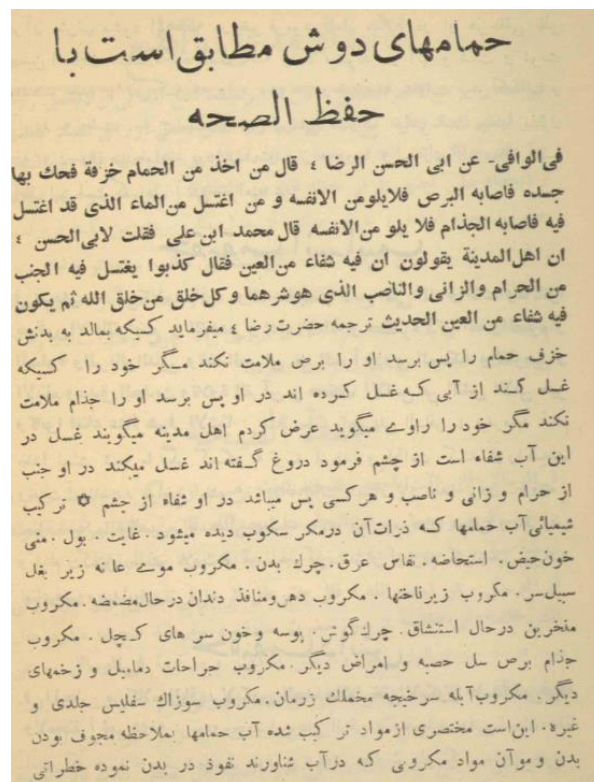 حمامهای دوش مطابق است با
حفظ الصحه
فی‌الوافی- عن ابی الحسن الرضا ٤ قال من اخذ من الحمام خزفة فحك بها
جسده فاصابه البرص فلایلومن الانفسه و من اغتسل من‌الماء الذی قد اغتسل
فیه فاصابه الجذام فلا یلو من‌الانفسه قال محمد ابن علی فقلت لابی‌الحسن ٤
ان اهل‌المدینة یقولون ان فیه شفاء من‌العین فقال کذبوا یغتسل فیه الجنب
من الحرام والزانی والناصب الذی هوشر هما و کل خلق من‌خلق الله ثم یکون
فیه شفاء من العین الحدیث ترجمه حضرت رضا ٤ میفرماید کسیکه بمالد به بدنش
خزف حمام را پس برسد او را برص ملامت نکند مگر خود را کسیکه
غسل کند از آبی که غسل کرده اند در او پس برسد او را جذام ملامت
نکند مگر خود را راوی میگوید عرض کردم اهل مدینه میگویند غسل در
این آب شفاء است از چشم فرمود دروغ گفته اند غسل میکند در او جنب
از حرام و زانی و ناصب و هر کسی پس میباشد در او شفاء از چشم ✡ ترکیب
شیمیائی آب حمامها که ذرات آن درمکر سکوب دیده میشود . غایت . بول . منی
خون‌حیض . استحاضه . نفاس عرق . چرك بدن . مکروب موی عانه زیر بغل
سبیل سر . مکروب زیرناختها . مکروب دهن ومنافذ دندان در حال‌مضمضه . مکروب
منخرین درحال استنشاق . چرك‌گوش . پوسه وخون سر های کچل . مکروب
جذام برص سل حصبه و امراض دیگر . مکروب جراحات دمامیل و زخمهای
دیگر . مکروب آبله سرخیجه مخملك زرمان . مکروب سوزاك سفلیس جلدی و
غیره . این‌است مختصری ازمواد تر کیب شده آب حمامها بملاحظه مجوف بودن
بدن وموآن مواد مکروبی که درآب شناورند نفوذ در بدن نموده خطراتی